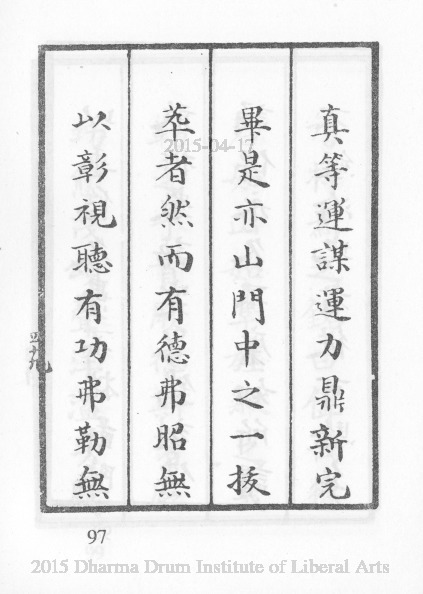 真等運謀運力鼎新完
畢是亦山門中之一拔
萃者然而有德弗昭無
以彰視聽有功弗勒無
2015-04-17
97
2015 Dharma Drum Institute of Liberal Arts